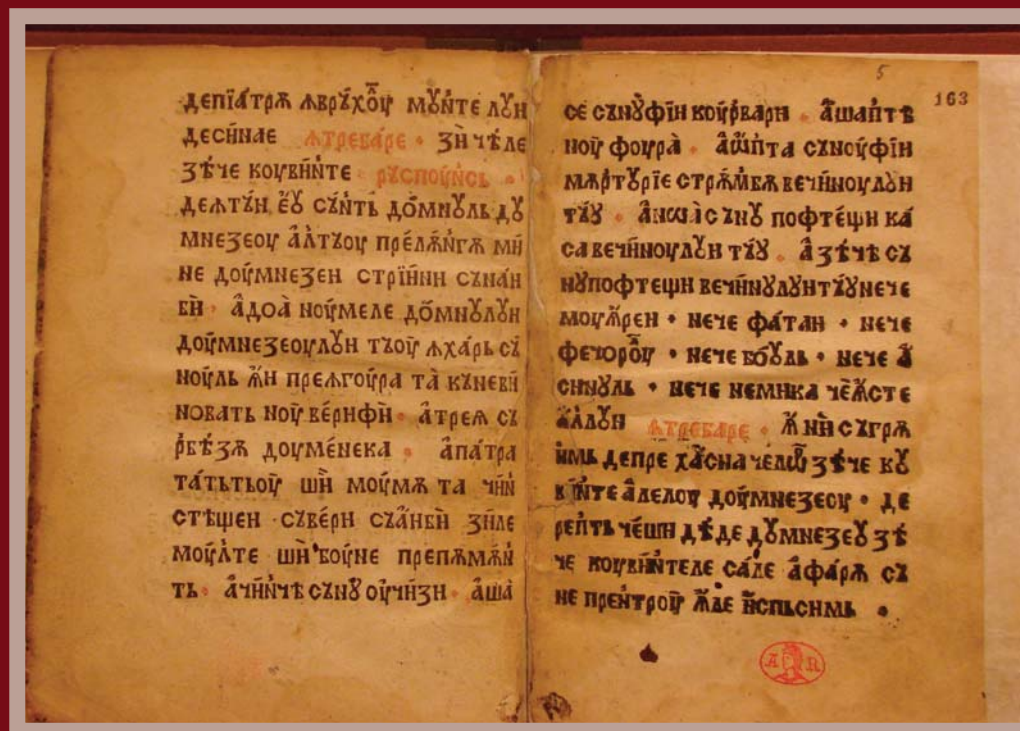 депїатрѫ ѫврꙋхо́ꙋ мꙋ́нте лꙋи
деси́нае ѫтребаре · зи́ чѣле
зѣ́че коувии́нте рꙋспоуи́нсь ·
деѫтꙋи е́ꙋ сꙋ́нть до́мнꙋль дꙋ
мнеꙁеоу а́лтꙋоу пре́лѫ́нгѫ ми́
не доу́мнеꙁеи стрїи́ни сꙋнаи
би́ · а́доа̀ ноу́меле до́мнꙋлꙋи
доу́мнеꙁеоулꙋи тꙋоу ѫха́рь сꙋ
ноу́ль ѫ́и преѫгоу́ра та̀ кꙋневи́
новать ноу ве́рифи̇ · а́треѫ сꙋ
рбѣ́ꙁѫ доуме́нека · а́па́тра
та́тьтьоу ши̇ моу́мѫ та чи́и
стѣ́щеи сꙋве́ри сꙋа́иби́ ꙁи́ле
моу́лте ши̇ боу́не препѫмѫ́и
ть · а́чи́нчѣ сꙋнꙋ оучи́ꙁи · а́ша̀
5
163
се сꙋнꙋ́фїи коу́рвари · а́шаи́тѣ
ноу фоура̀ · а́ѡ́пта сꙋноуфїи
мѫртꙋ́рїе стрѫ́мбѫ вечи́ноулꙋи
тꙋ́ꙋ · а́нѡа̀ сꙋнꙋ̀ пофте́щи ка́
са вечи́ноулꙋи тꙋ́ꙋ · а́ꙁѣ́чѣ сꙋ
нꙋпофтещи вечи́нꙋлꙋитꙋ́ꙋ нече
моуѫ́реи · нече фа́таи · нече
фечоро́ꙋ · нече бо́ꙋль · нече а́
синꙋль · нече немика че́ѫсте
а́лꙋи ѫтребаре · ѫ́ ни̇ сꙋгрѫ
имь депре хꙋ́сна челѡ́ ꙁѣ́че кꙋ
ви́нте а́лелоу доу́мнеꙁеоу · де
репть че́щи дѣ́де дꙋмнеꙁеꙋ ꙁѣ́
че коуви́нтеле са́ле а́фа́рѫ сꙋ
не преи́троу ѫ́ле и́спьсимь ·
A R